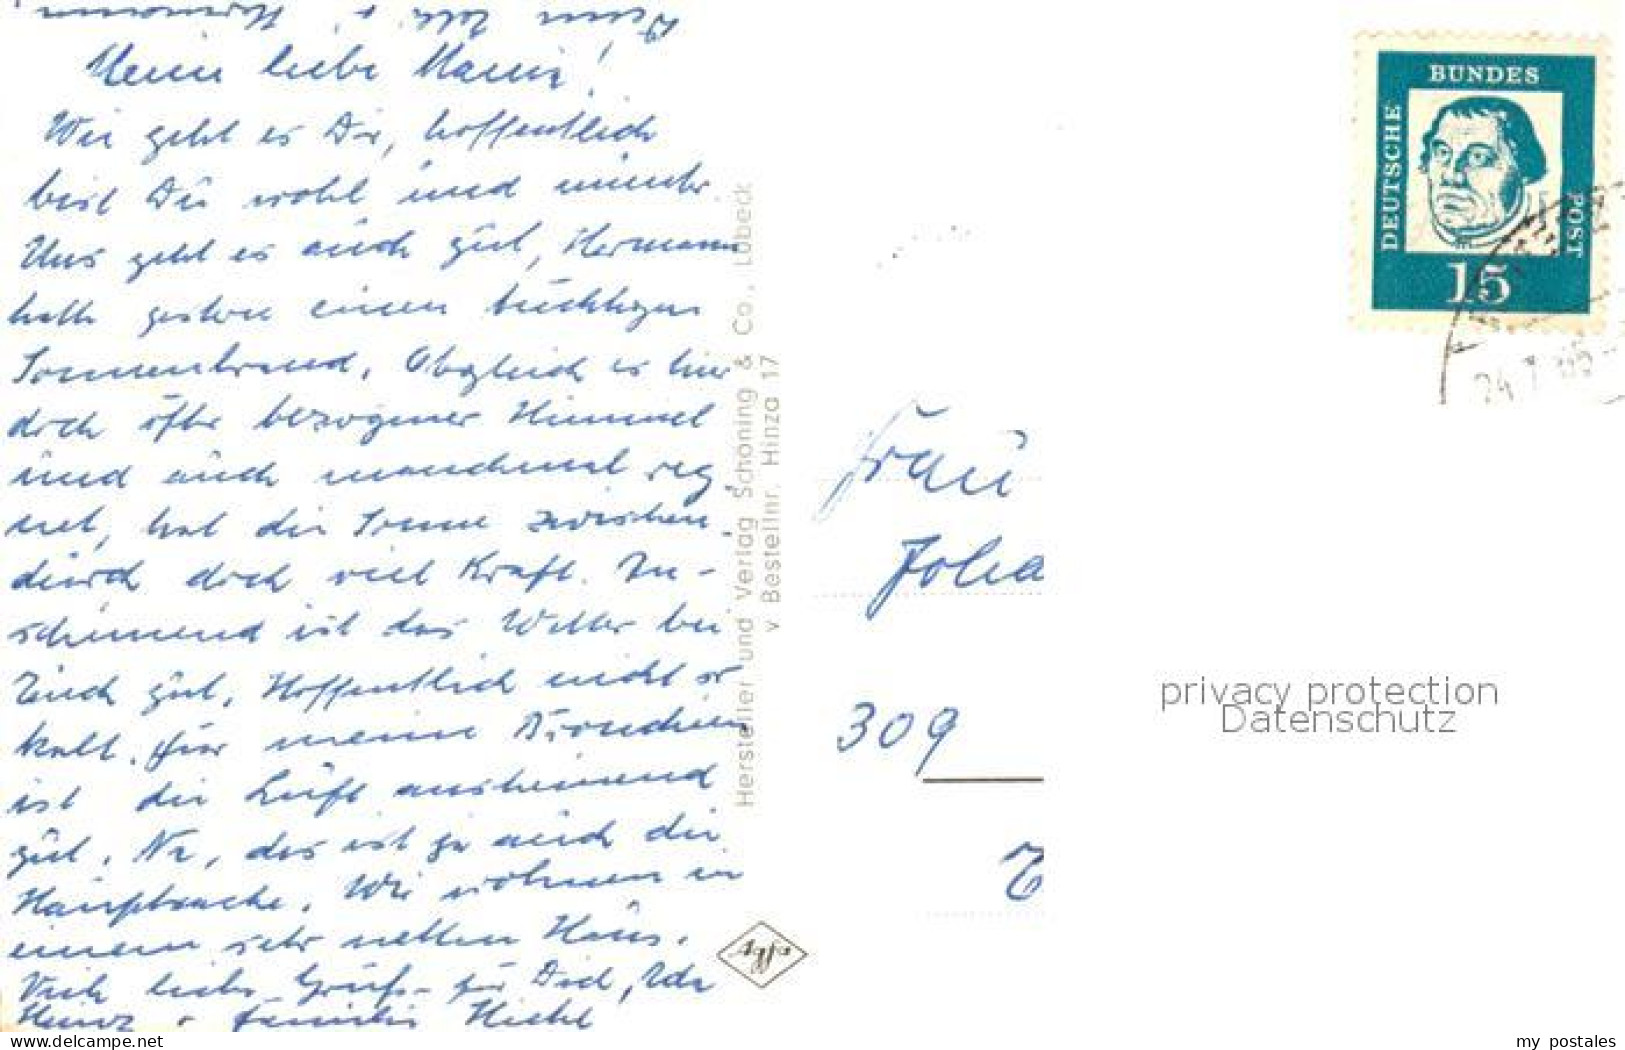 Deine Edith u. Hermann
Meine liebe Mama!
Wie geht es Dir, hoffentlich
bist Du wohl und munter.
Uns geht es auch gut, Hermann
hatte gestern einen tüchtigen
Sonnenbrand. Obgleich es hier
doch öfter bezogener Himmel
und auch manchmal reg
net, hat die Sonne zwischen
durch doch viel Kraft. An-
scheinend ist das Wetter bei
Euch gut. Hoffentlich nicht so
kalt. Für meine Bronchien
ist die Luft anscheinend
gut. Na, das ist ja auch die
Hauptsache. Wir wohnen in
einem sehr netten Haus.
Viele liebe Grüße für Dich,
Heinz u. Familie
Hersteller und Verlag Schöning & Co., Lübeck
v Bestellnr. Hinza 17
Agfa
DEUTSCHE
BUNDES
POST
15
24.7.
Frau
Joha
309
privacy protection
Datenschutz
www.ansichtskartenversand.com
my_postales